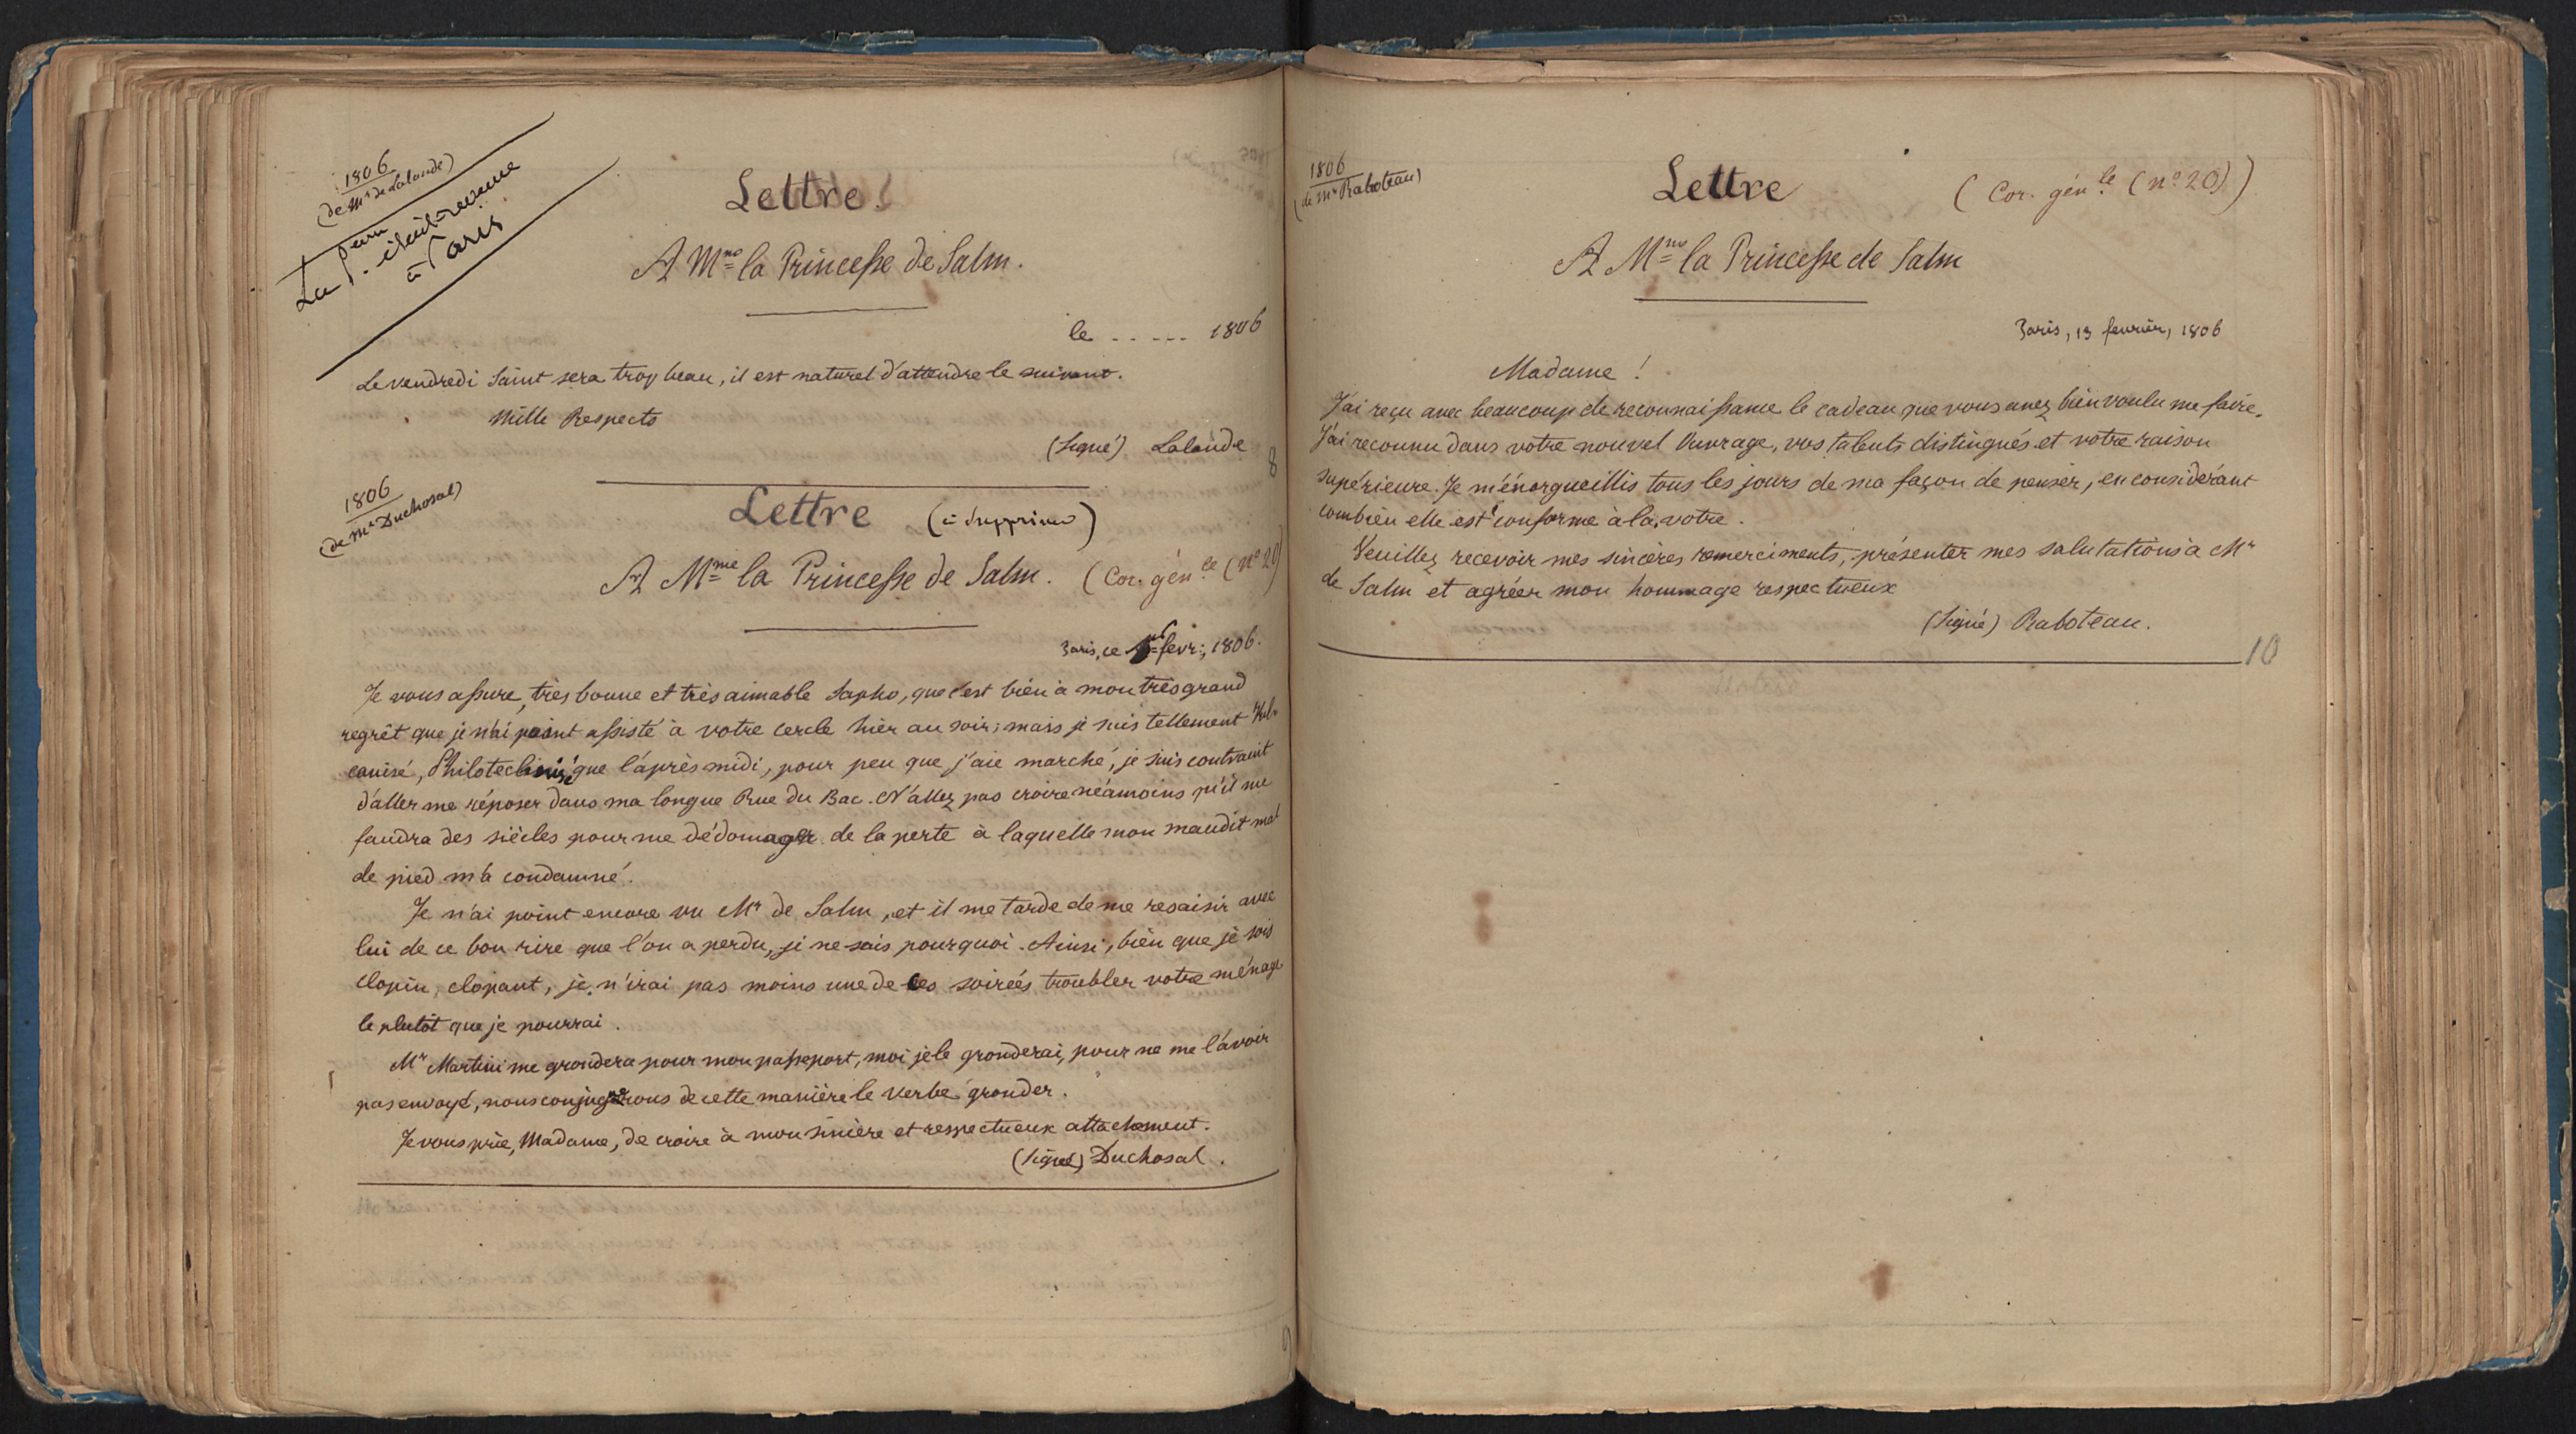 1806
(de Mr de Lalande)
La P. était revenue
à Paris
Lettre
A Mme la Princesse de Salm.
le ...... 1806
Le vendredi Saint sera trop beau, il est naturel d'attendre le suivant.
Mille Respects
(Signé) Lalande
8
1806
(de Mr Duchosal)
Lettre (à supprimer)
A Mme la Princesse de Salm. (Cor. génle (no 20)
Paris, ce 1er fevr:, 1806.
Je vous assure, très bonne et très aimable Sapho, que c'est bien à mon très grand
regrêt que je n'ai point assisté à votre cercle hièr au soir; mais je suis tellement Vul-
canisé, que l'après midi, pour peu que j'aie marché, je suis contraint
d'aller me réposer dans ma longue Rue du Bac. N'allez pas croire néamoins qu'il me
faudra des siècles pour me dédomager de la perte à laquelle mon maudit mal
de pied m'a condamné.
Je n'ai point encore vu Mr de Salm, et il me tarde de me resaisir avec
lui de ce bon rire que l'on a perdu, je ne sais pourquoi. Ainsi, bien que je sois
clopin, clopant, je n'irai pas moins une de ces soirées troubler votre ménage
le plutôt que je pourrai.
Mr Martini me grondera pour mon passeport, moi je le gronderai, pour ne me l'avoir
pas envoyé, nous conjuguerons de cette manière le verbe gronder.
Je vous prie, Madame, de croire à mon sincère et respectueux attachement.
(Signé) Duchosal.
9
1806
(de Mr Raboteau)
Lettre (Cor. génle (no 20))
A Mme la Princesse de Salm
Paris, 13 fevrier, 1806
Madame !
J'ai reçu avec beaucoup de reconnaissance le cadeau que vous avez bien voulu me faire.
J'ai reconnu dans votre nouvel Ouvrage, vos talents distingués et votre raison
supérieure. Je m'énorgueillis tous les jours de ma façon de penser, en considérant
combien elle est conforme à la votre.
Veuillez recevoir mes sincères remerciments, présenter mes salutations à Mr
de Salm et agréer mon hommage respectueux
(Signé) Raboteau.
10